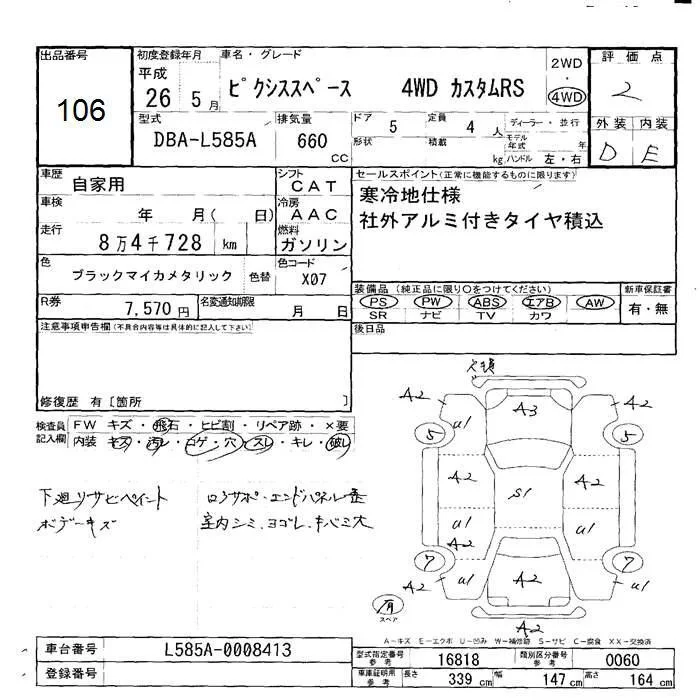 出品番号
106
初度登録年月
平成
26 5月
車名・グレード
ピクシススペース 4WD カスタムRS
2WD
・
4WD
評価点
2
外装 内装
D E
型式
DBA-L585A
排気量
660
cc
ドア
5
定員
4 人
形状
積載
kg
ディーラー・並行
モデル
年式 年
ハンドル 左・右
車歴
自家用
シフト
CAT
車検
年 月( 日)
冷房
AAC
走行
8万4千728 km
燃料
ガソリン
色
ブラックマイカメタリック
色替
色コード
X07
R券
7,570円
名変通知期限
月 日
セールスポイント(正常に機能するものに限ります)
寒冷地仕様
社外アルミ付きタイヤ積込
装備品 (純正品に限り〇をつけてください)
PS PW ABS エアB AW
SR ナビ TV カワ
新車保証書
有・無
後日品
注意事項申告欄(不具合内容等は具体的に記入して下さい)
修復歴 有[箇所 ]
検査員
記入欄
FW キズ・飛石・ヒビ割・リペア跡・×要
内装 キズ・汚レ・コゲ・穴・スレ・キレ・破レ
下廻りサビペイント
ボデーキズ
ロアサポ・エンドパネル歪
室内シミ、ヨゴレ、キバミ大
A2
A3
A2
U1
U1
5
5
A2
S1
A2
U1
A2
U1
7
7
A2
U1
A2
U1
A2
A2
有
スペア
A-キズ E-エクボ U-凹み W-補修跡 S-サビ C-腐食 XX-交換済
車台番号
L585A-0008413
登録番号
型式指定番号
参考
16818
類別区分番号
参考
0060
車庫証明用
参考
長さ
339 cm
幅
147 cm
高さ
164 cm